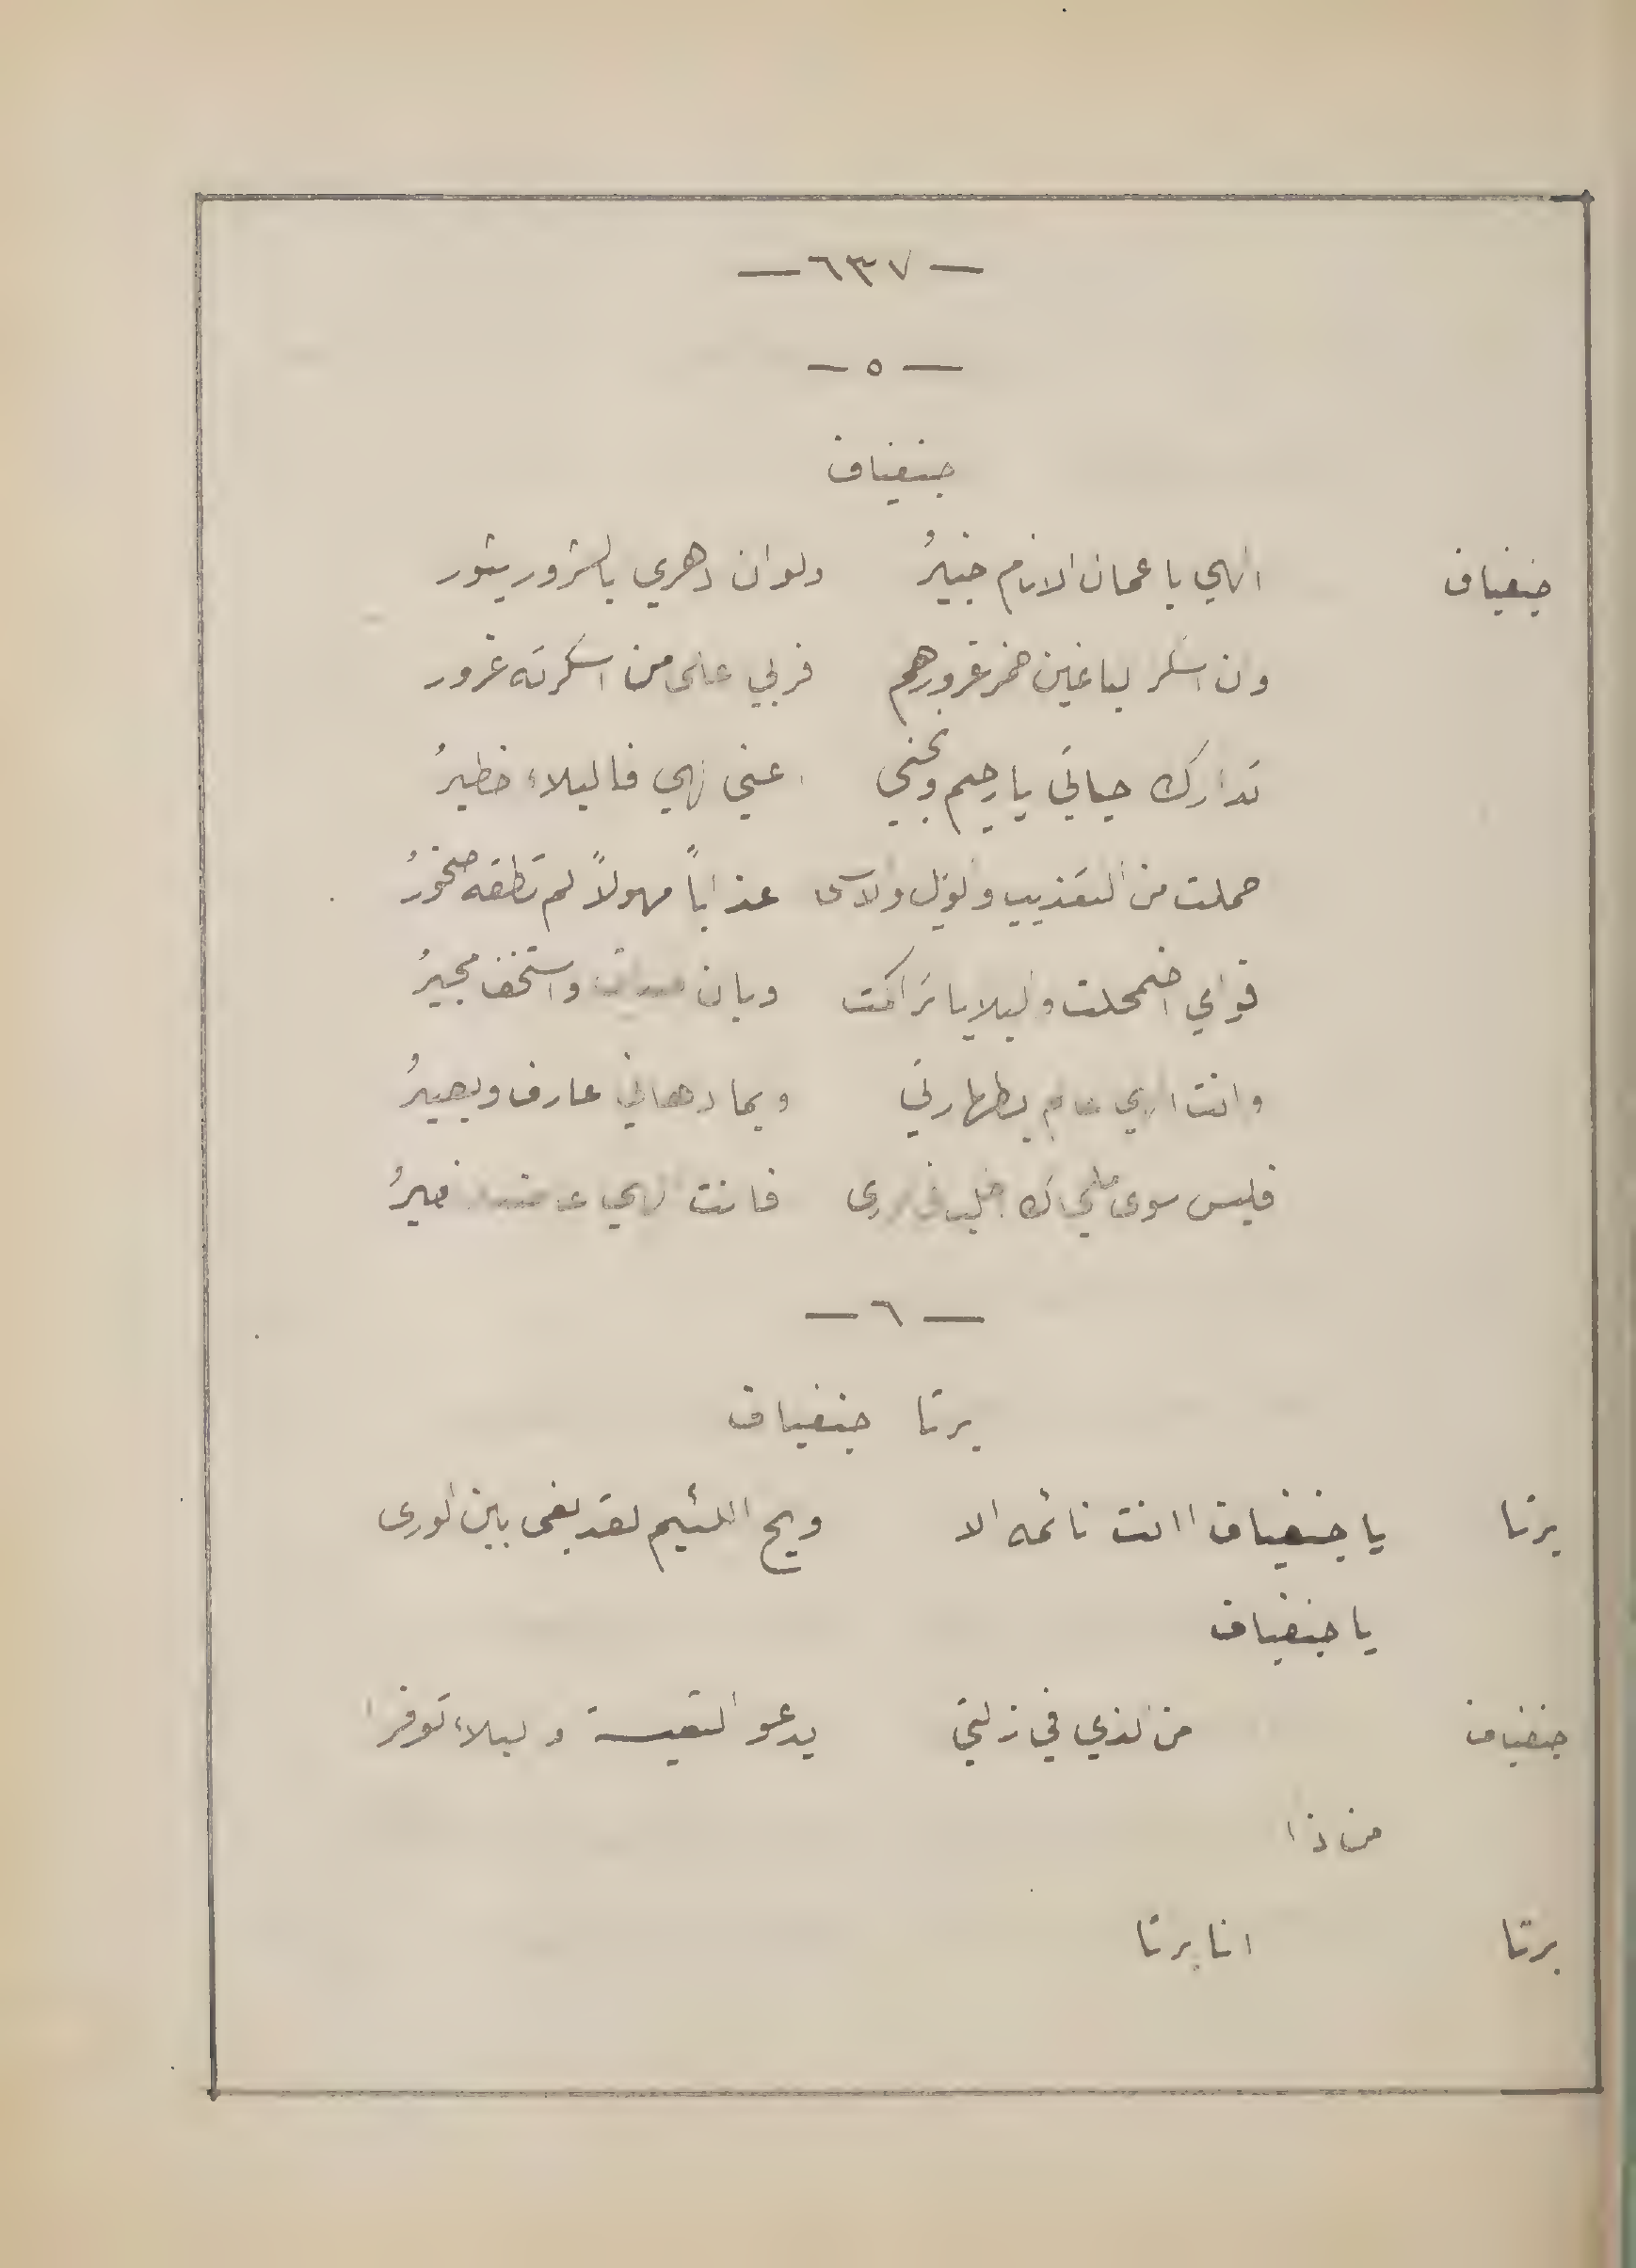 — ٦٣٧ —
— ٥ —
جنفياف
جنفياف الهي باعمال الانام خبيرُ ولو ان دهري بالشرور يثور
وان اسكر الباغين خمر غرورهم فربي على من اسكرته غرور
تدارك حياتي يا رحيم ونجني اعني الهي فالبلاء خطيرُ
حملت من التعذيب والويل والاسى عذاباً مهولاً لم تطقه صخورُ
قواي اضمحلت والبلايا تراكمت وبان واستخف مجيرُ
وانت الهي عالم بطهارتي وبما دهاني عارف وبصيرُ
فليس سوى في فانت الهي
— ٦ —
برتا جنفياف
برتا يا جنفياف اانت نائمه الا ويح اللئيم لقد بغى بين الورى
يا جنفياف
جنفياف من الذي في زلتي يدعو التعيسة والبلاء توفرا
من ذا
برتا انا برتا